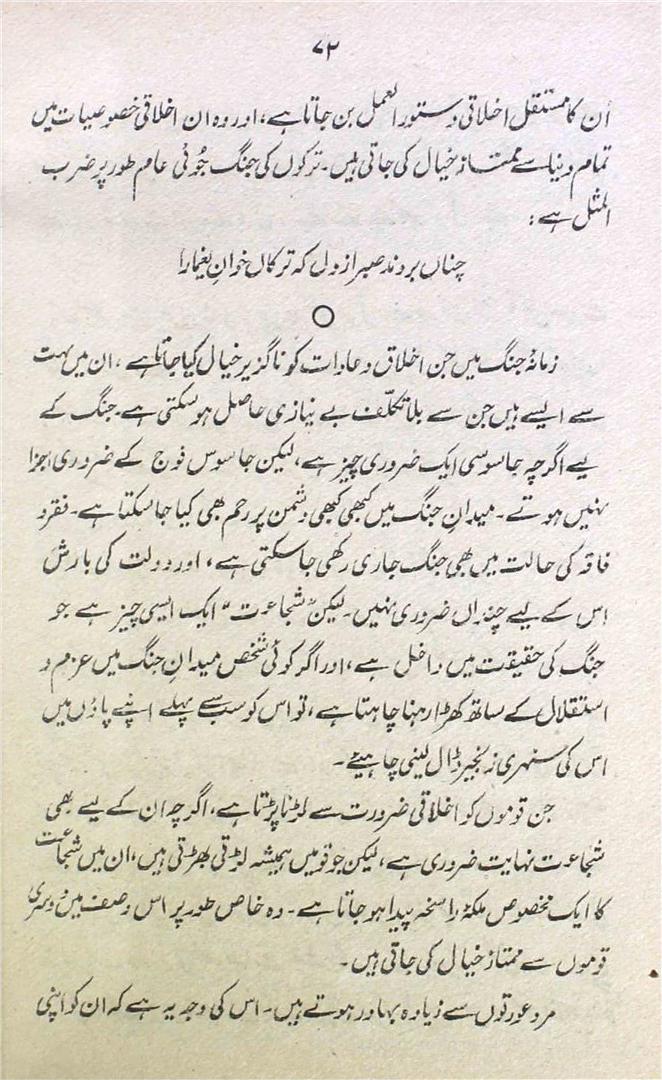 ۷۲
اُن کا مستقل اخلاقی دستور العمل بن جاتا ہے، اور وہ ان اخلاقی خصوصیات میں
تمام دنیا سے ممتاز خیال کی جاتی ہیں۔ ترکوں کی جنگ جُوئی عام طور پر ضرب
المثل ہے:
چناں بردند صبر از دل کہ ترکاں خوانِ یغما را
○
زمانۂ جنگ میں جن اخلاق و عادات کو ناگزیر خیال کیا جاتا ہے، ان میں بہت
سے ایسے ہیں جن سے بلا تکلّف بے نیازی حاصل ہو سکتی ہے۔ جنگ کے
لیے اگرچہ جاسوسی ایک ضروری چیز ہے، لیکن جاسوس فوج کے ضروری اجزا
نہیں ہوتے۔ میدانِ جنگ میں کبھی کبھی دشمن پر رحم بھی کیا جا سکتا ہے۔ فقر و
فاقہ کی حالت میں بھی جنگ جاری رکھی جا سکتی ہے، اور دولت کی بارش
اس کے لیے چنداں ضروری نہیں۔ لیکن "شجاعت" ایک ایسی چیز ہے جو
جنگ کی حقیقت میں داخل ہے، اور اگر کوئی شخص میدانِ جنگ میں عزم و
استقلال کے ساتھ کھڑا رہنا چاہتا ہے، تو اس کو سب سے پہلے اپنے پاؤں میں
اس کی سنہری زنجیر ڈال لینی چاہیئے۔
جن قوموں کو اخلاقی ضرورت سے لڑنا پڑتا ہے، اگرچہ ان کے لیے بھی
شجاعت نہایت ضروری ہے، لیکن جو قومیں ہمیشہ لڑتی بھڑتی ہیں، ان میں شجاعت
کا ایک مخصوص ملکۂ راسخہ پیدا ہو جاتا ہے۔ وہ خاص طور پر اس وصف میں دوسری
قوموں سے ممتاز خیال کی جاتی ہیں۔
مرد عورتوں سے زیادہ بہادر ہوتے ہیں۔ اس کی وجہ یہ ہے کہ ان کو اپنی